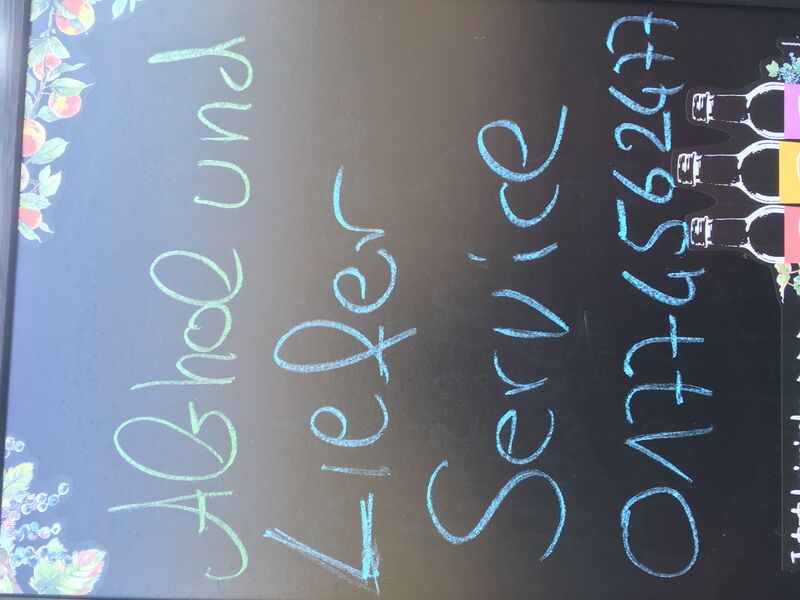 ABhol und
Liefer
Service
01774562477